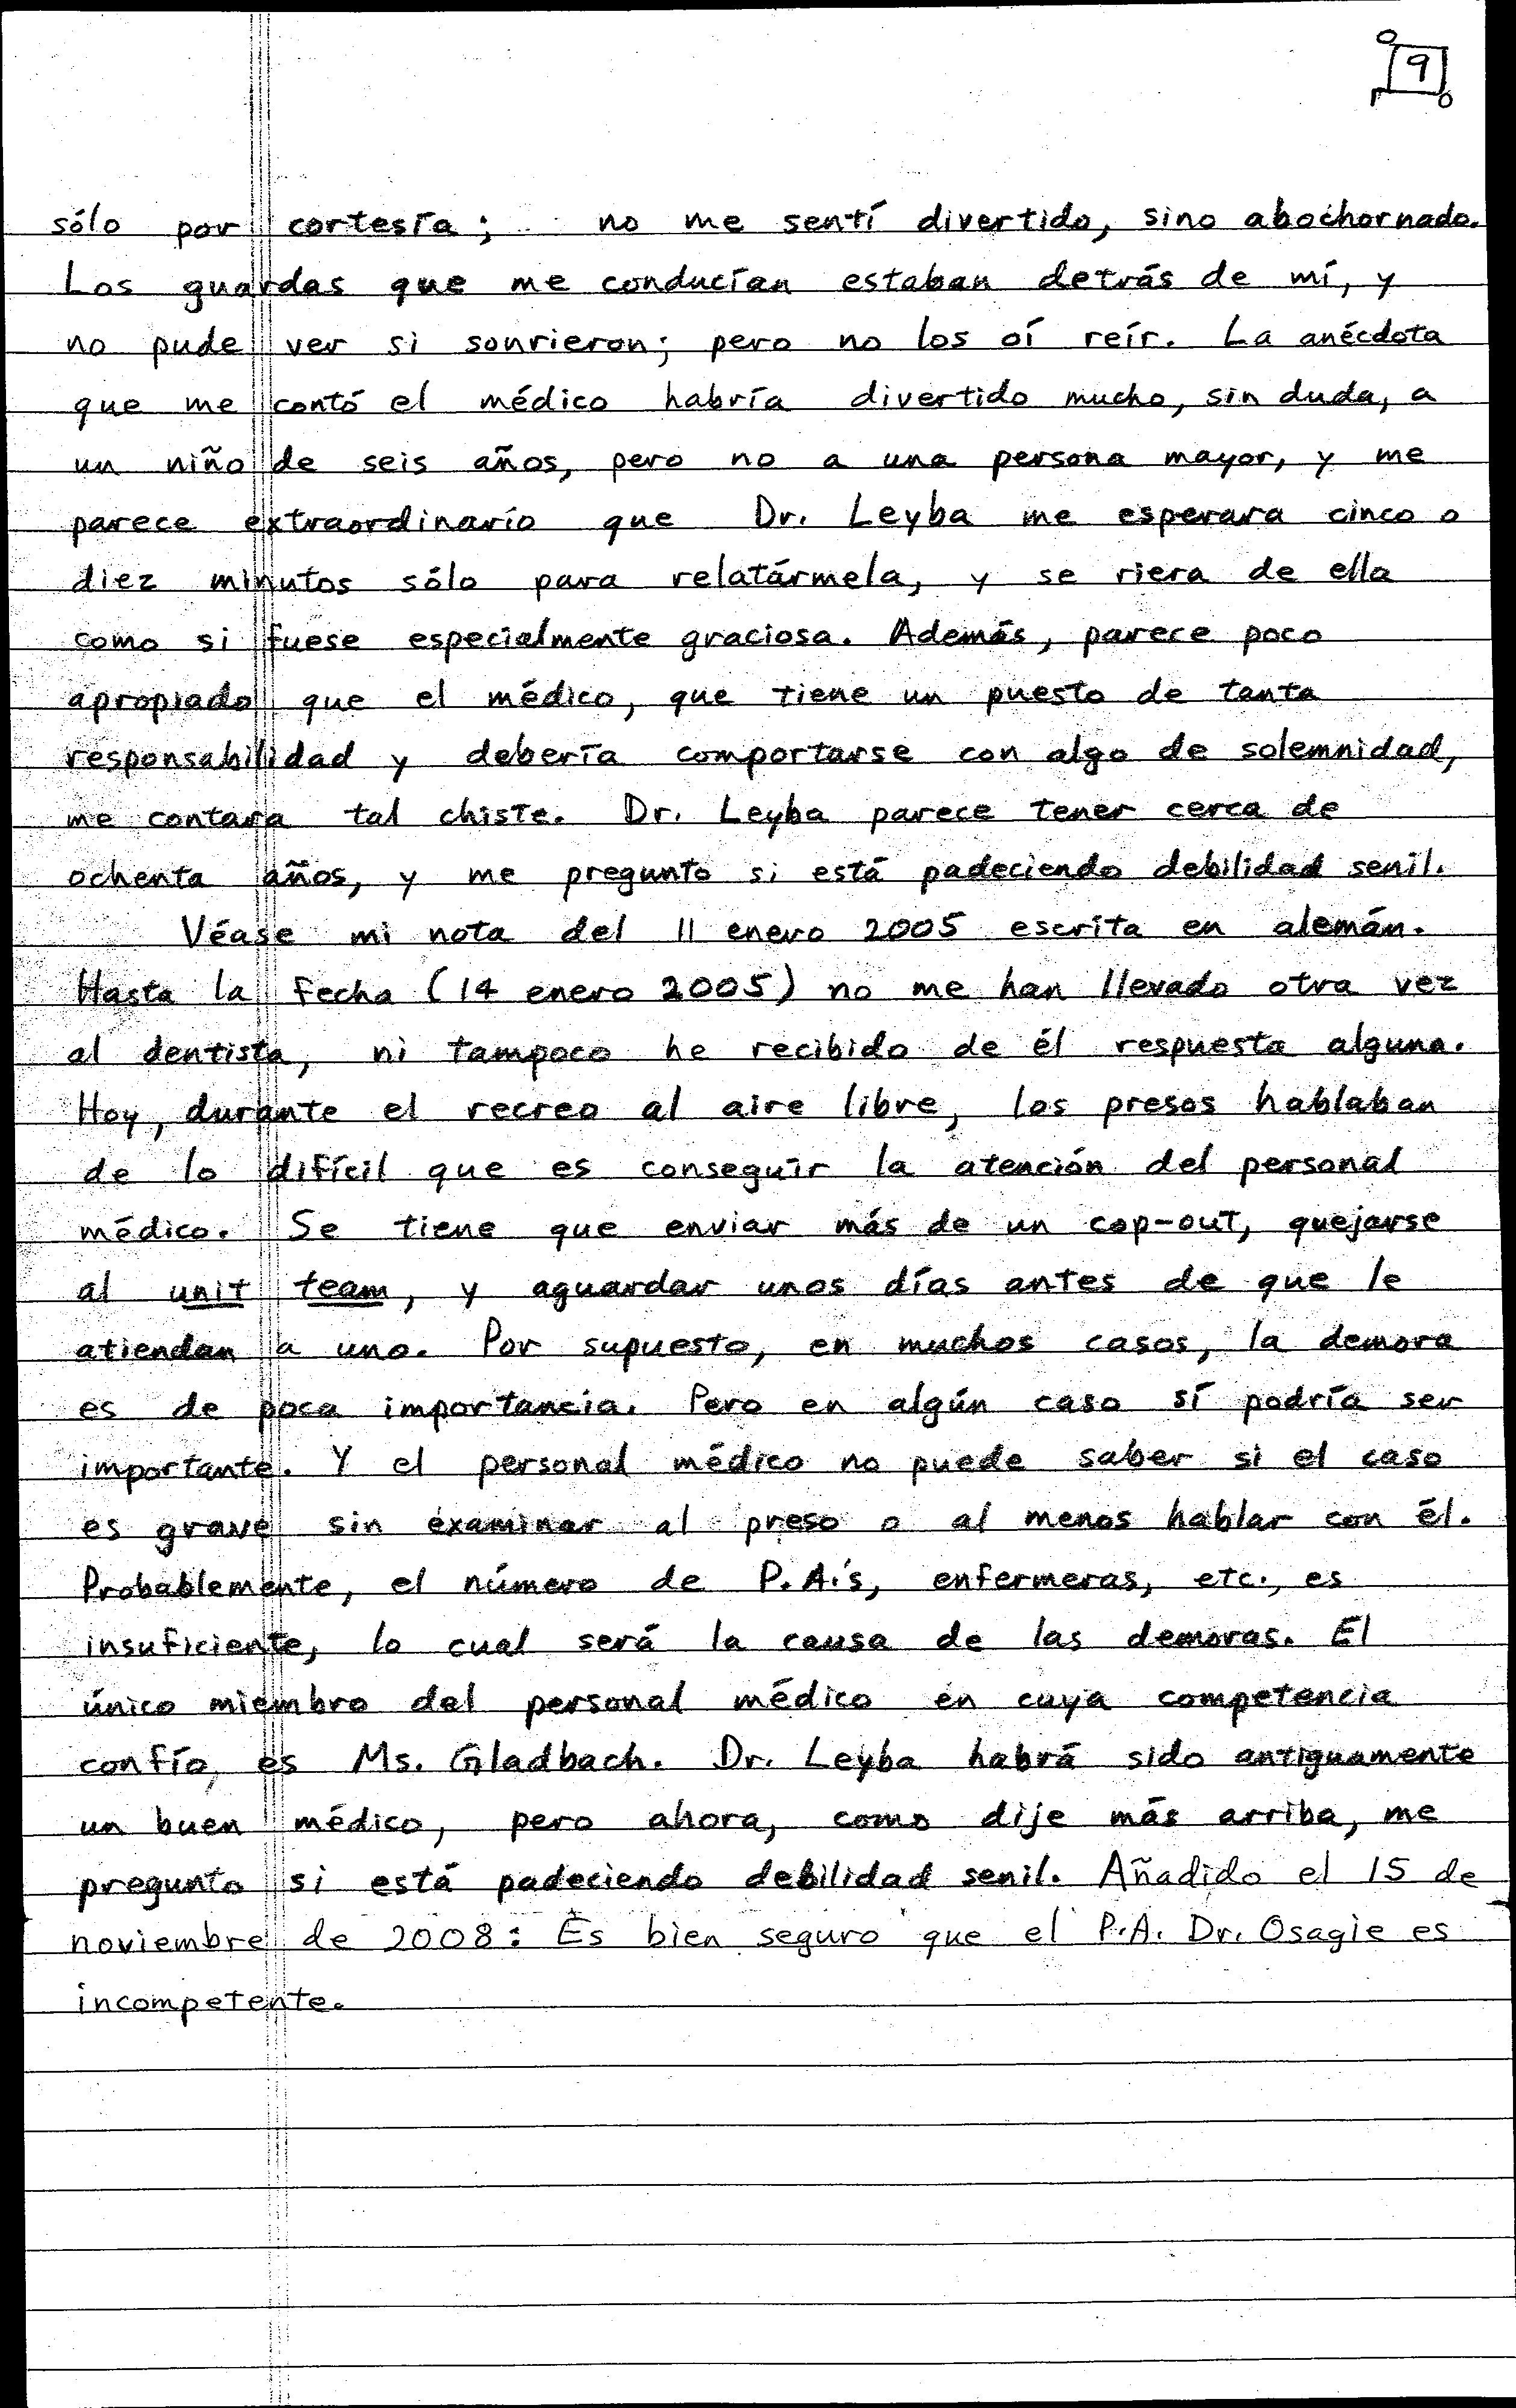 9
sólo por cortesía; no me sentí divertido, sino abochornado.
Los guardas que me conducían estaban detrás de mí, y
no pude ver si sonrieron; pero no los oí reír. La anécdota
que me contó el médico habría divertido mucho, sin duda, a
un niño de seis años, pero no a una persona mayor, y me
parece extraordinario que Dr. Leyba me esperara cinco o
diez minutos sólo para relatármela, y se riera de ella
como si fuese especialmente graciosa. Además, parece poco
apropiado que el médico, que tiene un puesto de tanta
responsabilidad y debería comportarse con algo de solemnidad,
me contara tal chiste. Dr. Leyba parece tener cerca de
ochenta años, y me pregunto si está padeciendo debilidad senil.
Véase mi nota del 11 enero 2005 escrita en alemán.
Hasta la fecha (14 enero 2005) no me han llevado otra vez
al dentista, ni tampoco he recibido de él respuesta alguna.
Hoy, durante el recreo al aire libre, los presos hablaban
de lo difícil que es conseguir la atención del personal
médico. Se tiene que enviar más de un cop-out, quejarse
al unit team, y aguardar unos días antes de que le
atiendan a uno. Por supuesto, en muchos casos, la demora
es de poca importancia. Pero en algún caso sí podría ser
importante. Y el personal médico no puede saber si el caso
es grave sin examinar al preso o al menos hablar con él.
Probablemente, el número de P.A.'s, enfermeras, etc., es
insuficiente, lo cual será la causa de las demoras. El
único miembro del personal médico en cuya competencia
confío, es Ms. Gladbach. Dr. Leyba habrá sido antiguamente
un buen médico, pero ahora, como dije más arriba, me
pregunto si está padeciendo debilidad senil. Añadido el 15 de
noviembre de 2008: Es bien seguro que el P.A. Dr. Osagie es
incompetente.